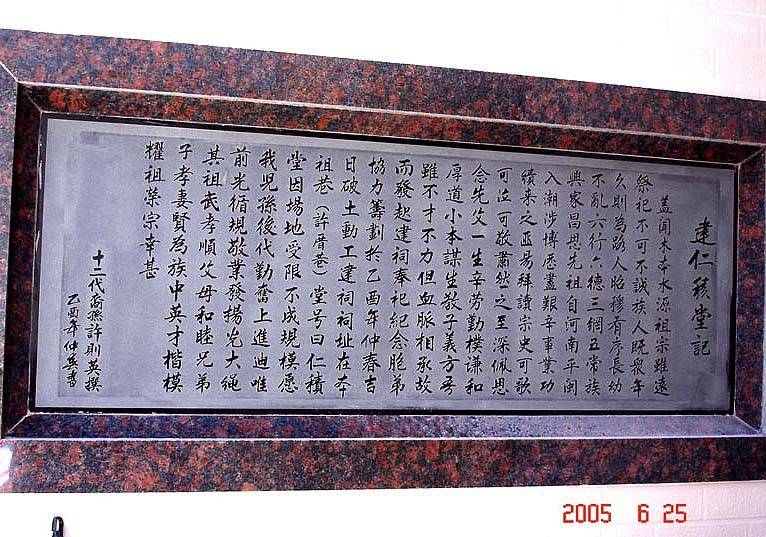 建仁積堂記
蓋聞木本水源祖宗雖遠
祭祀不可不誠族人既衆年
久則為路人昭穆有序長幼
不亂六行六德三綱五常族
興家昌思先祖自河南平閩
入潮涉博歷盡艱辛事業功
績来之不易拜讀宗史可歌
可泣可敬肅然之至深佩思
念先父一生辛勞勤樸謙和
厚道小本謀生教子義方吾
雖不才不力但血脈相承故
而發起建祠奉祀紀念胞弟
協力籌劃於乙酉年仲春吉
日破土動工建祠祠址在本
祖巷（許厝巷）堂号曰仁積
堂因場地受限不成規模愿
我児孫後代勤奮上進迪唯
前光循規敬業發揚光大繩
其祖武孝順父母和睦兄弟
子孝妻賢為族中英才楷模
耀祖榮宗幸甚
十二代裔孫許則英撰
乙酉年仲英書
2005 6 25